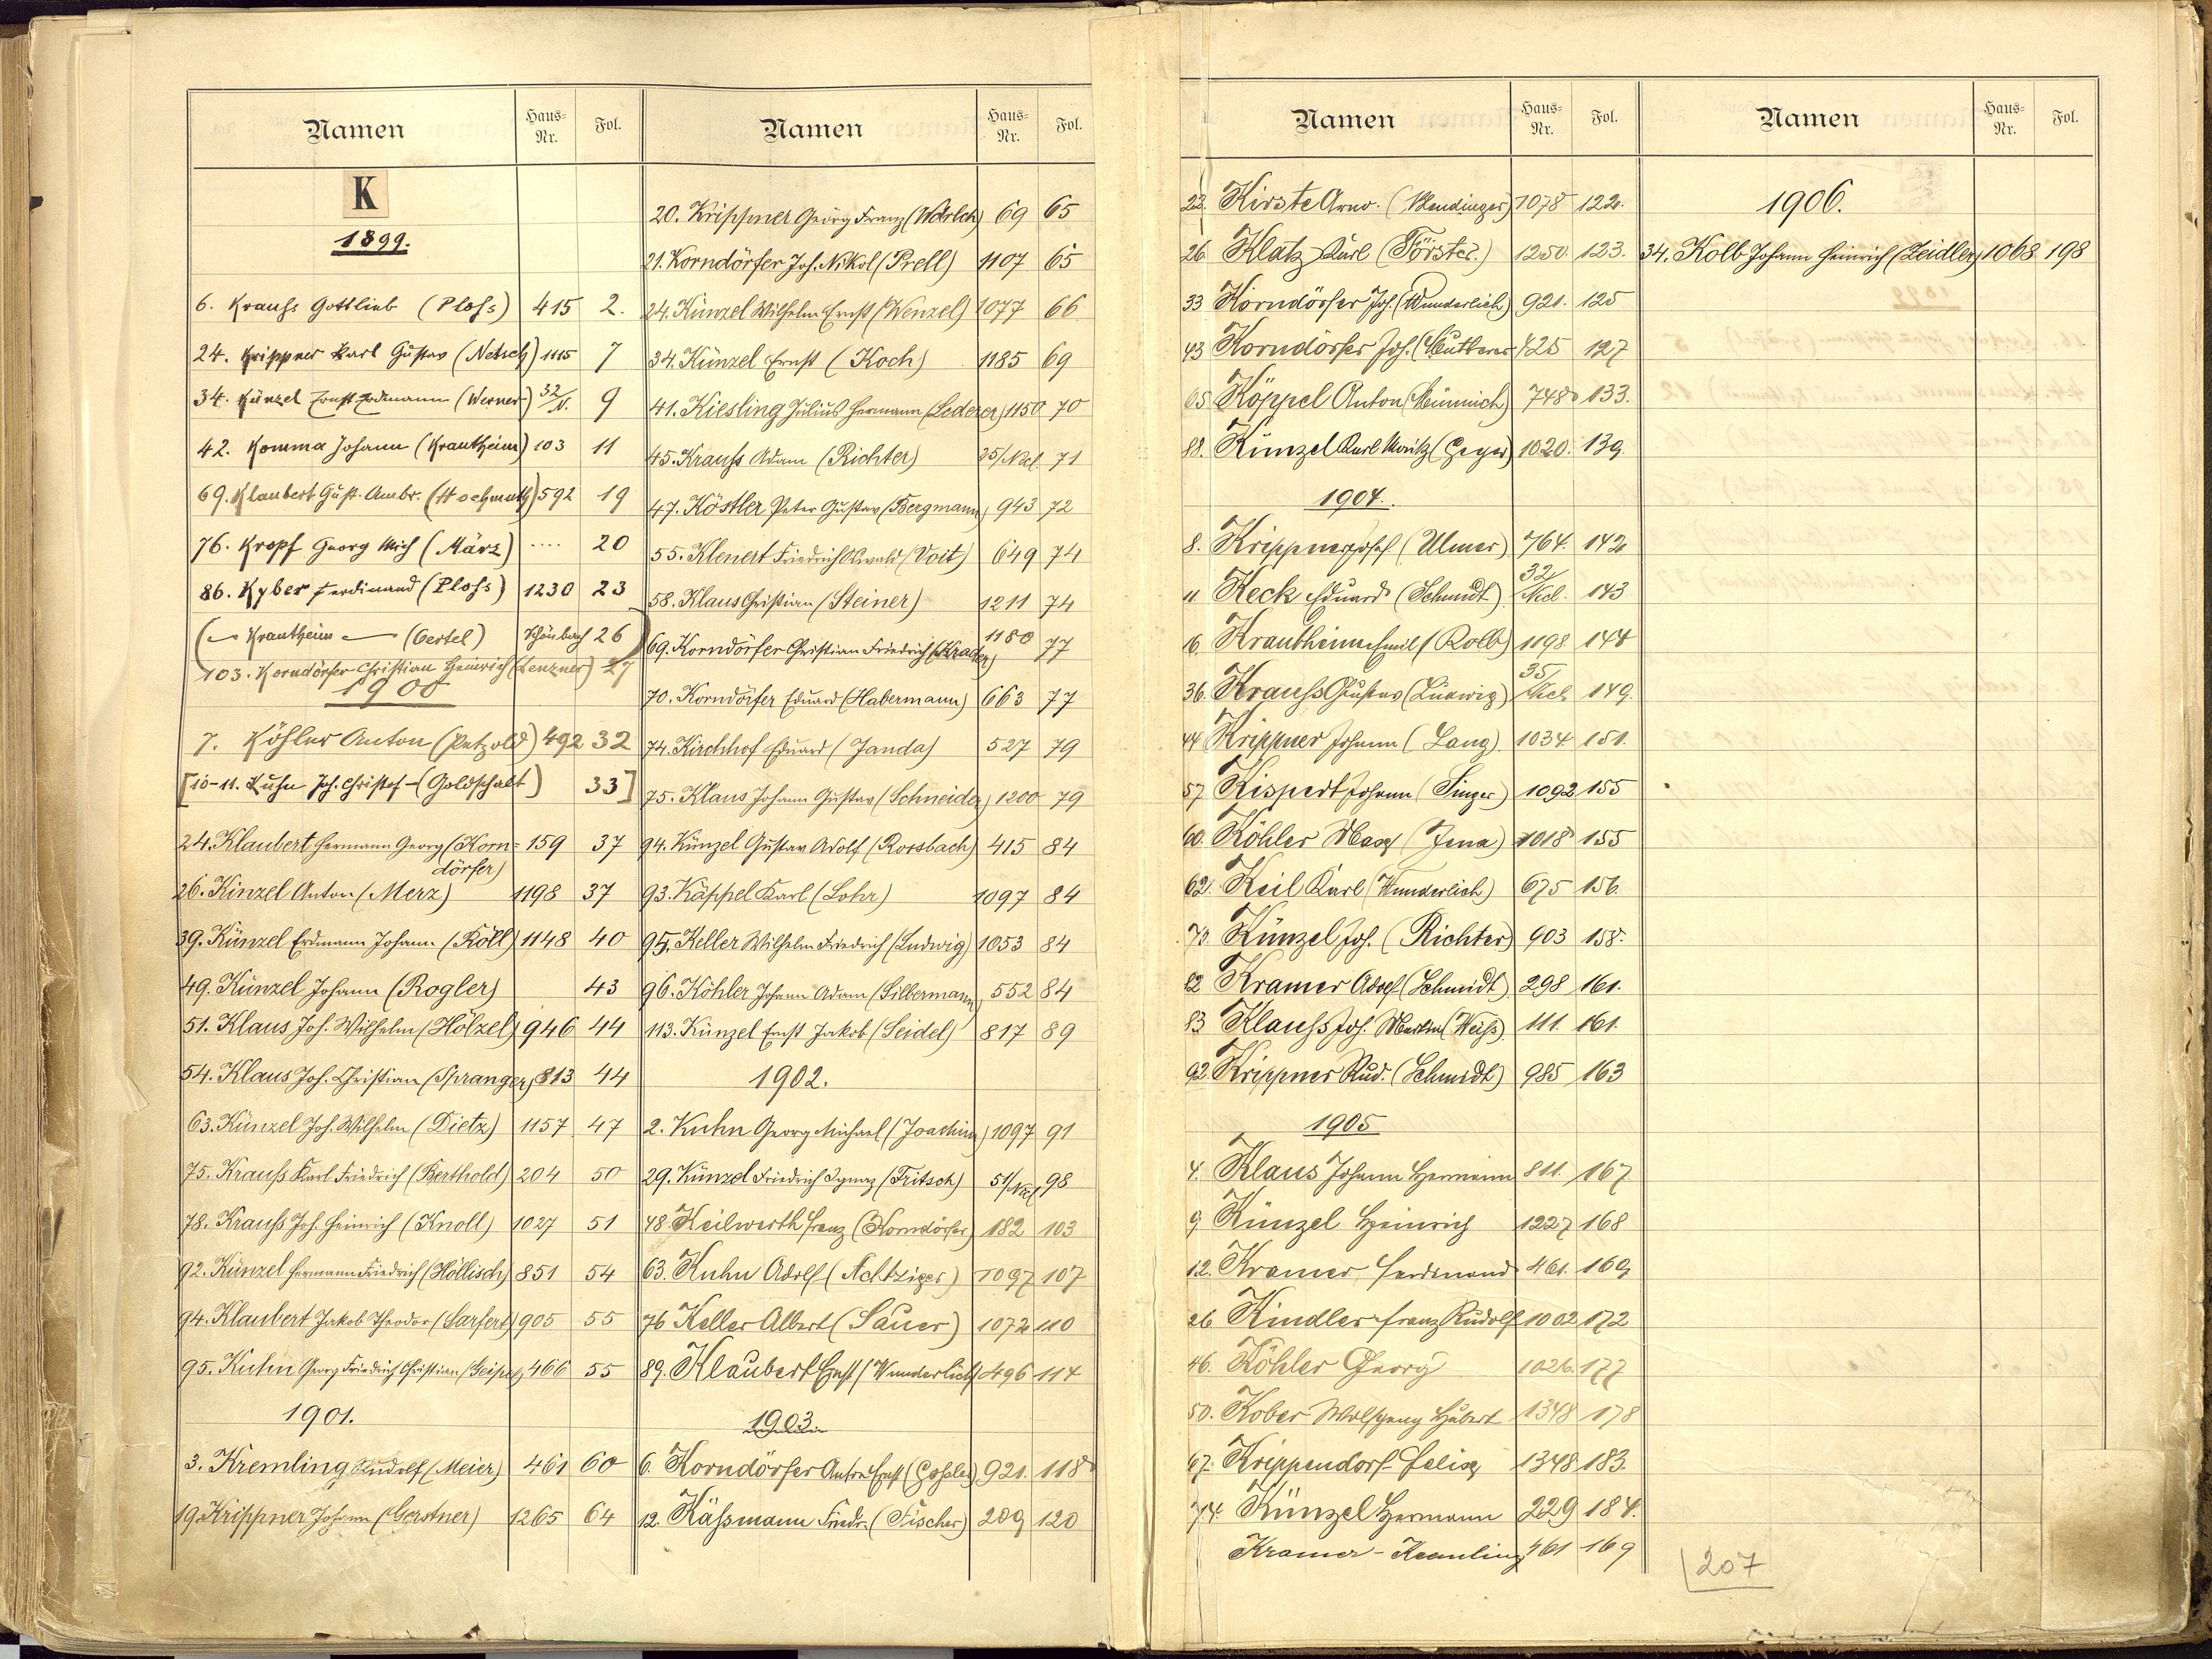 Namen Haus-Nr. Fol.
K
1899.
6. Krauß Gottlieb (Ploß) 415 2.
24. Krippner Karl Gustav (Netsch) 1115 7
34. Künzel Ernst Erdmann (Werner) 32/N. 9
42. Komma Johann (Krautheim) 103 11
69. Klaubert Gust. Ambr. (Hochmuth) 592 19
76. Kropf Georg Mich (März) .... 20
86. Kyber Ferdinand (Ploß) 1230 23
(— Krautheim — (Oertel) Schönbach 26)
103. Korndörfer Christian Heinrich (Lenzner) 27
1900
7. Köhler Anton (Petzold) 492 32
[10-11. Kuhn Joh. Christof (Goldschalt) 33]
24. Klaubert Hermann Georg (Korn= 159 37
dörfer)
26. Kinzel Anton (Merz) 1198 37
39. Künzel Erdmann Johann (Röll) 1148 40
49. Künzel Johann (Rogler) 43
51. Klaus Joh. Wilhelm (Hölzel) 946 44
54. Klaus Joh. Christian (Spranger) 813 44
63. Künzel Joh. Wilhelm (Dietz) 1157 47
75. Krauß Karl Friedrich (Berthold) 204 50
78. Krauß Joh. Heinrich (Knoll) 1027 51
92. Künzel Hermann Friedrich (Höllisch) 851 54
94. Klaubert Jakob Theodor (Sarfert) 905 55
95. Kuhn Georg Friedrich Christian (Geipel) 466 55
1901.
3. Kremling Rudolf (Meier) 461 60
19. Krippner Johann (Gerstner) 1265 64
Namen Haus-Nr. Fol.
20. Krippner Georg Franz (Wörlch) 69 65
21. Korndörfer Joh. Nikol (Prell) 1107 65
24. Künzel Wilhelm Ernst (Wenzel) 1077 66
34. Künzel Ernst (Koch) 1185 69
41. Kiesling Julius Hermann (Lederer) 1150 70
45. Krauß Adam (Richter) 25/Nkl. 71
47. Köstler Peter Gustav (Bergmann) 943 72
55. Klenert Friedrich Oswald (Voit) 649 74
58. Klaus Christian (Steiner) 1211 74
69. Korndörfer Christian Friedrich (Krader) 1180 77
70. Korndörfer Eduard (Habermann) 663 77
74. Kirchhof Eduard (Janda) 527 79
75. Klaus Johann Gustav (Schneider) 1200 79
94. Künzel Gustav Adolf (Rossbach) 415 84
93. Käppel Karl (Lohr) 1097 84
95. Keller Wilhelm Friedrich (Ludwig) 1053 84
96. Köhler Johann Adam (Silbermann) 552 84
113. Künzel Ernst Jakob (Seidel) 817 89
1902.
2. Kuhn Georg Michael (Joachim) 1097 91
29. Künzel Friedrich Ignaz (Fritsch) 51/Nkl. 98
48. Keilwerth Franz (Korndörfer) 182 103
63. Kuhn Adolf (Achtziger) 1097 107
76 Keller Albert (Sauer) 1072 110
89. Klaubert Ernst (Wunderlich) 496 114
1903.
6. Korndörfer Anton Ernst (Goßler) 921. 118
12. Käßmann Friedr. (Fischer) 209 120
Namen Haus-Nr. Fol.
22. Kirste Arno. (Wendinger) 1078 122.
26. Klatz Karl (Förster.) 1250. 123.
33 Korndörfer Joh. (Wunderlich) 921. 125
43 Korndörfer Joh. (Mutterer 425 127
65 Köppel Anton (Künnich) 748 133.
88. Künzel Karl Moritz (Geyer) 1020. 139.
1904.
8. Krippner Josef (Ulmer) 764. 142
11 Keck Eduard (Schmidt) 32/Nkl. 143
16 Krautheim Emil (Kolb) 1198. 144
36. Krauß Gustav (Ludwig) 35/Nkl. 149.
44 Krippner Johann (Lang). 1034. 151.
57 Kispert Johann (Singer) 1092 155
60. Köhler Max (Jena) 1018 155
62. Keil Karl (Wunderlich) 675 156.
73. Künzel Joh. (Richter) 903 158.
82 Kramer Adolf (Schmidt) 298 161.
83 Klauß Joh. Martin (Weiß). 111. 161.
92. Krippner Rud. (Schmidt) 985 163
1905
4. Klaus Johann Hermann 811. 167
9 Künzel Heinrich 1227 168
12. Kramer Ferdinand 461. 169
26 Kindler Franz Rudolf 1002 172
46. Köhler Georg 1026. 177
50. Kober Wolfgang Hubert 1348 178
67. Krippendorf Felix 1348 183.
74. Künzel Hermann 229 184.
Kramer-Kremling 461 169
Namen Haus-Nr. Fol.
1906.
34. Kolb Johann Heinrich (Zeidler) 1068 198
207